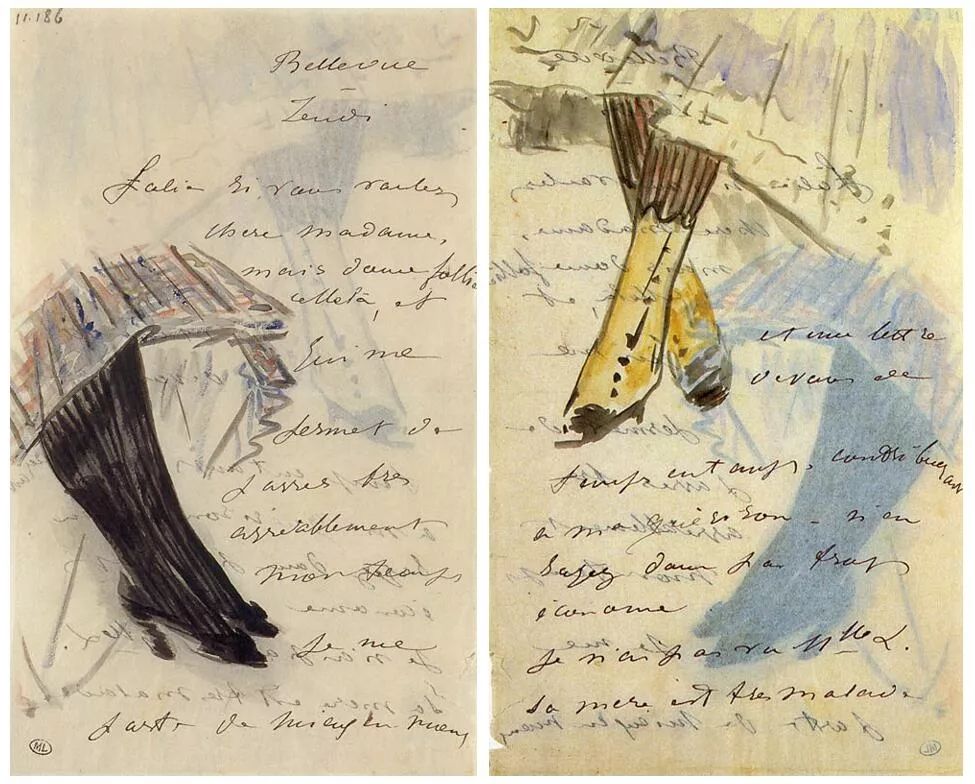 11.186
Bellevue
Jeudi
Folie si vous voulez
chere madame,
mais douce folie
celle là, et
qui me
permet de
passer tres
agreablement
mon temps
Je me
porte de mieux en mieux
ML
et une lettre
de vous de
temps en temps,
a ma guerison - n'en
soyez donc pas trop
économe
Je n'ai pas vu Mlle L.
sa mere est tres malade